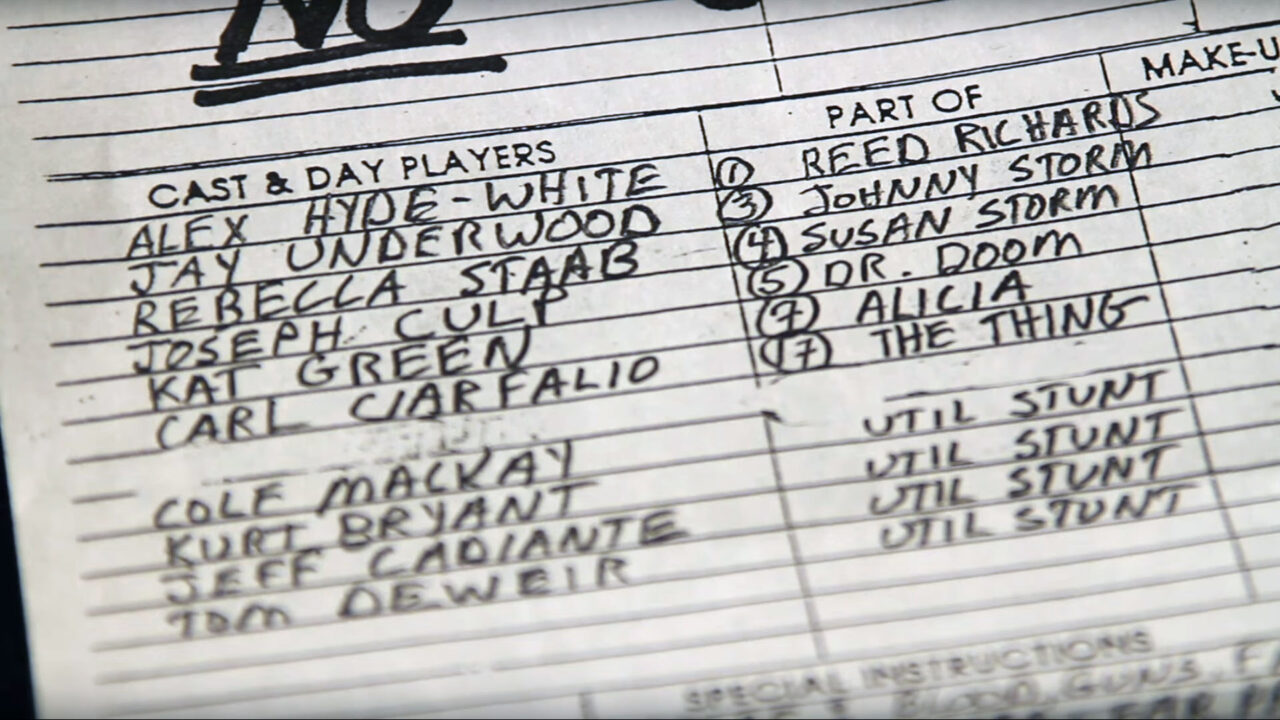 NO
CAST & DAY PLAYERS PART OF MAKE-U
ALEX HYDE-WHITE (1) REED RICHARDS
JAY UNDERWOOD (3) JOHNNY STORM
REBECCA STAAB (4) SUSAN STORM
JOSEPH CULP (5) DR. DOOM
KAT GREEN (7) ALICIA
CARL CIARFALIO (17) THE THING
COLE MACKAY UTIL STUNT
KURT BRYANT UTIL STUNT
JEFF CADIANTE UTIL STUNT
TOM DEWEIR UTIL STUNT
SPECIAL INSTRUCTIONS
BLOOD, GUNS,